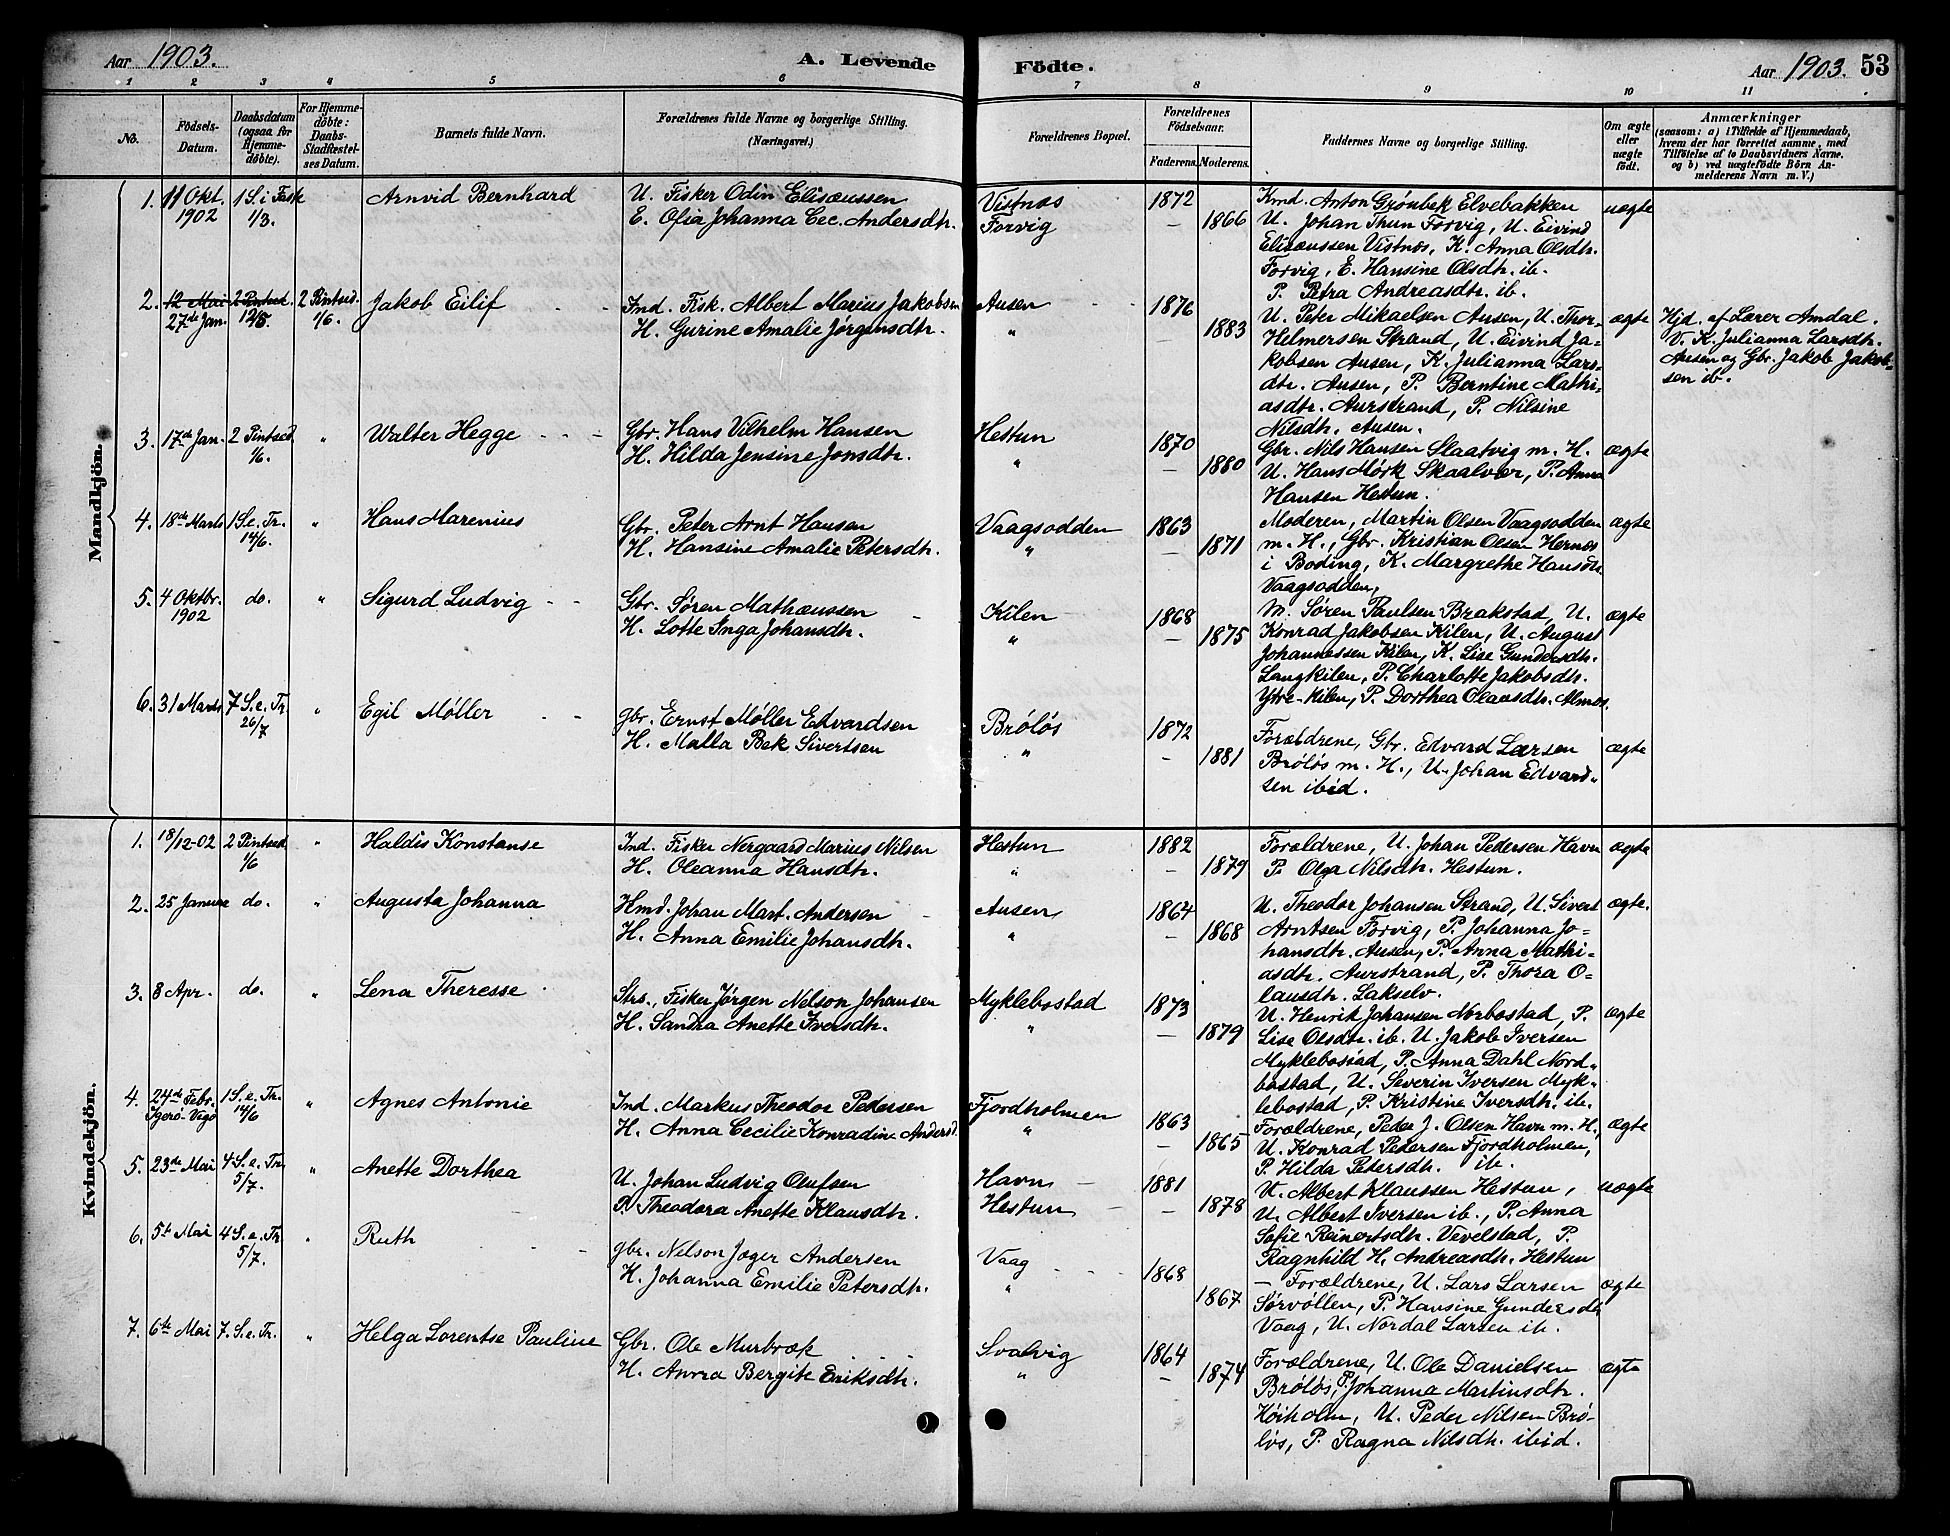 Aar 1903. A. Levende Födte. Aar 1903. 53
1 2 3 4 5 6 7 8 9 10 11
No. Födsels-Datum. Daabsdatum (ogsaa for Hjemme-döbte). For Hjemme-döbte: Daabs-Stadfæstel-ses Datum. Barnets fulde Navn. Forældrenes fulde Navne og borgerlige Stilling. (Næringsvei.) Forældrenes Bopæl. Forældrenes Födselsaar. Faderens. Moderens. Faddernes Navne og borgerlige Stilling. Om ægte eller uægte födt. Anmærkninger (saasom: a) i Tilfælde af Hjemmedaab, hvem der har forrettet samme, med Tilföielse af to Daabsvidners Navne. og b) ved uægtefödte Börn An-melderens Navn m. V.)
Mandkjön.
1. 11 Okt. 1 S. i Fask Arnvid Bernhard U. Fisker Odin Elisæussen Vistnæs 1872 Kmd. Anton Grønbek Elvebakken uægte
1902 1/3. E. Ofia Johanna Cec. Andersdtr. Forvig — 1866 U. Johan Thun Forvig, U. Eivind
Elisæussen Vistnæs, K. Anna Olsdtr.
Forvig, E. Hansine Olsdtr. ib.
P. Petra Andreasdtr. ib.
2. 12 Mai 2 Pintsed. 2 Pintsed. Jakob Eilif Ind. Fisk. Albert Marius Jakobsen Ausen 1876 U. Peter Mikaelsen Ausen, U. Thor- ægte Hjd. af Lærer Amdal.
27de Jan. 12/5. 1/6. H. Gurine Amalie Jørgensdtr. " — 1883 Helmersen Strand, U. Eivind Ja- V. K. Julianna Larsdtr.
kobsen Ausen, K. Julianna Lars- Ausen og Gbr. Jakob Jakob-
dtr. Ausen, P. Berntine Mathi- sen ib.
asdtr. Aurstrand, P. Nilsine
Nilsdtr. Ausen.
3. 17de Jan. 2 Pintsed " Walter Hegge Gbr. Hans Vilhelm Hansen Hestun 1870 Gbr. Nils Hansen Slaatvig m. H. ægte
1/6. H. Hilda Jensine Jonsdtr. " — 1880 U. Hans Mørk Skaalvær, P. Anna
Hansen Hestun.
4. 18de Marts 1 S. e. Tr. " Hans Marenius Gbr. Peter Arnt Hansen Vaagsodden 1863 Moderen, Martin Olsen Vaagsodden ægte
14/6. H. Hansine Amalie Petersdtr. " — 1871 m. H., Gbr. Kristian Olsen Hernes
i Boding, K. Margrethe Hansdtr.
Vaagsodden,
5. 4 Oktbr. do. " Sigurd Ludvig Gbr. Søren Mathæussen Kilen 1868 M. Søren Paulsen Brakstad, U. ægte
1902 H. Lotte Inga Johansdtr. " — 1875 Konrad Jakobsen Kilen, U. August
Johannessen Kilen, K. Lise Gundersdtr.
Langkilen, P. Charlotte Jakobsdtr.
Ytre-Kilen, P. Dorthea Olausdtr. Almnæs.
6. 31 Marts 7 S. e. Tr. " Egil Møller gbr. Ernst Møller Edvardsen Brøløs 1872 Forældrene, Gbr. Edvard Larsen ægte
26/7 H. Malla Bek Sivertsen " — 1881 Brøløs m. H., U. Johan Edvard-
sen ibid.
Kvindekjön.
1. 18/12-02 2 Pintsed " Haldis Konstanse Ind. Fisker Nergaard Marius Nilsen Hestun 1882 Forældrene, U. Johan Pedersen Havn ægte
1/6 H. Oleanna Hansdtr. " — 1879 P. Olga Nilsdtr. Hestun.
2. 25 Januar do. " Augusta Johanna Hmd. Johan Mart. Andersen Ausen 1864 U. Theodor Johansen Strand, U. Sivert ægte.
H. Anna Emilie Johansdtr. " — 1868 Arntsen Forvig, P. Johanna Jo-
hansdtr. Ausen, P. Anna Mathi-
asdtr. Aurstrand, P. Thora O-
lausdtr. Lakselv.
3. 8 Apr. do. " Lena Theresse Strs., Fisker Jørgen Nelson Johansen Myklebostad 1873 U. Henrik Johansen Norbostad, P. ægte
H. Sandra Anette Iversdtr. " — 1879 Lise Olsdtr. ib. U. Jakob Iversen
Myklebostad, P. Anna Dahl Nord-
bostad, U. Severin Iversen Myk-
lebostad, P. Kristine Iversdtr. ib.
4. 24de Febr. 1 S. e. Tr. " Agnes Antonie Ind. Markus Theodor Pedersen Fjordholmen 1863 Forældrene, Peder J. Olsen Havn m. H, ægte
Igerø-Vega 14/6 H. Anna Cecilie Konradine Andersd. " — 1865 U. Konrad Pedersen Fjordholmen,
P. Hilda Petersdtr. ib.
5. 23de Mai 4 S. e. Tr. " Anette Dorthea U. Johan Ludvig Olufsen Havn 1881 U. Albert Klaussen Hestun, uægte
5/7. P. Theodora Anette Klausdtr. Hestun — 1878 U. Albert Iversen ib., P. Anna
Sofie Reinertsdtr. Vevelstad, P.
Ragnhild H. Andreasdtr. Hestun
6. 5te Mai 4 S. e. Tr. " Ruth gbr. Nelson Jæger Andersen Vaag 1868 — Forældrene, U. Lars Larsen ægte
5/7. H. Johanna Emilie Petersdtr. " 1867 Sørvøllen, P. Hansine Gundersdtr
Vaag, U. Nordal Larsen ib.
7. 6te Mai 7. S. e. Tr. " Helga Lorentse Pauline Gbr. Ole Murbræk Svalvig 1864 Forældrene, U. Ole Danielsen ægte
H. Anna Bergite Eriksdtr. " — 1874 Brøløs, P. Johanna Martinsdtr.
Høiholm, U. Peder Nilsen Brø-
løs, P. Ragna Nilsdtr. ibid.